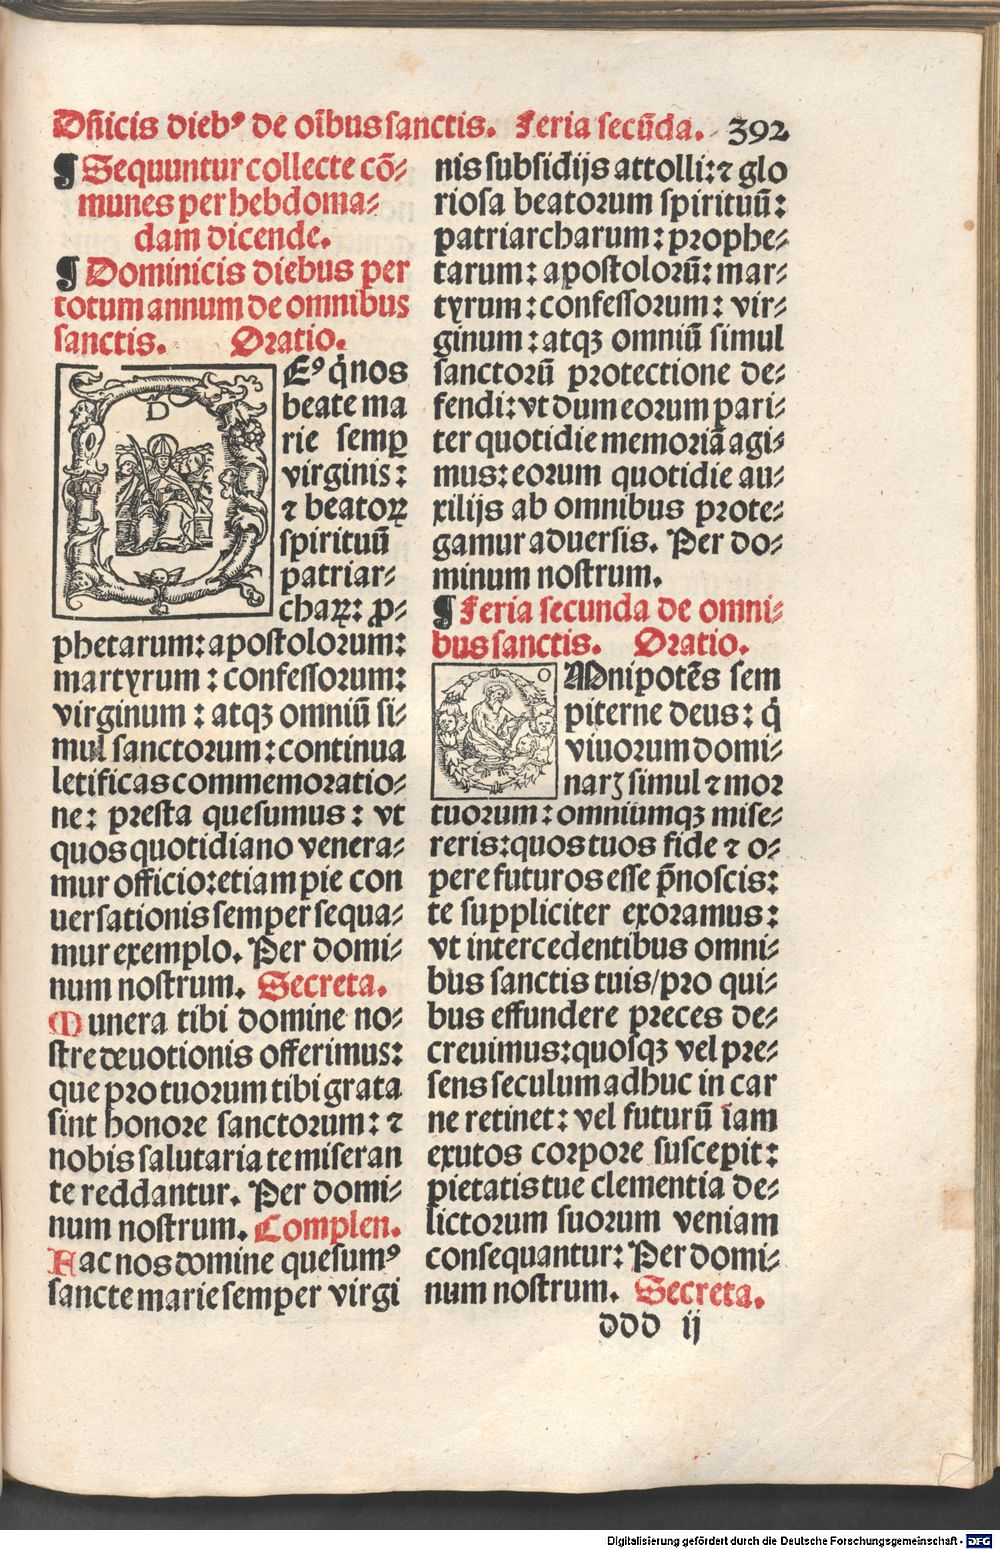 Dn̄icis dieb⁹ de oībus sanctis. Feria secūda. 392
¶ Sequuntur collecte cō⸗
munes per hebdoma⸗
dam dicende.
¶ Dominicis diebus per
totum annum de omnibus
sanctis. Oratio.
D
E⁹ q̄ nos
beate ma
rie semꝑ
virginis:
⁊ beatoꝝ
spirituū
patriar⸗
chaꝝ: ꝓ⸗
phetarum: apostolorum:
martyrum: confessorum:
virginum: atqꝫ omniū si⸗
mul sanctorum: continua
letificas commemoratio⸗
ne: presta quesumus: vt
quos quotidiano venera⸗
mur officio: etiam pie con
uersationis semper sequa⸗
mur exemplo. Per domi⸗
num nostrum. Secreta.
Munera tibi domine no⸗
stre deuotionis offerimus:
que pro tuorum tibi grata
sint honore sanctorum: ⁊
nobis salutaria te miseran
te reddantur. Per domi⸗
num nostrum. Complen.
Fac nos domine quesum⁹
sancte marie semper virgi
nis subsidijs attolli: ⁊ glo
riosa beatorum spirituū:
patriarcharum: prophe⸗
tarum: apostolorū: mar⸗
tyrum: confessorum: vir⸗
ginum: atqꝫ omniū simul
sanctorū protectione de⸗
fendi: vt dum eorum pari⸗
ter quotidie memoriā agi⸗
mus: eorum quotidie au⸗
xilijs ab omnibus prote⸗
gamur aduersis. Per do⸗
minum nostrum.
¶ Feria secunda de omni⸗
bus sanctis. Oratio.
O
Mnipotēs sem
piterne deus: q̄
viuorum domi⸗
narꝭ simul ⁊ mor
tuorum: omniūmqꝫ mise⸗
reris: quos tuos fide ⁊ o⸗
pere futuros esse p̄noscis:
te suppliciter exoramus:
vt intercedentibus omni⸗
bus sanctis tuis/ pro qui⸗
bus effundere preces de⸗
creuimus: quosqꝫ vel pre⸗
sens seculum adhuc in car
ne retinet: vel futurū iam
exutos corpore suscepit:
pietatis tue clementia de⸗
lictorum suorum veniam
consequantur: Per domi⸗
num nostrum. Secreta.
ddd ij
Digitalisierung gefördert durch die Deutsche Forschungsgemeinschaft - DFG